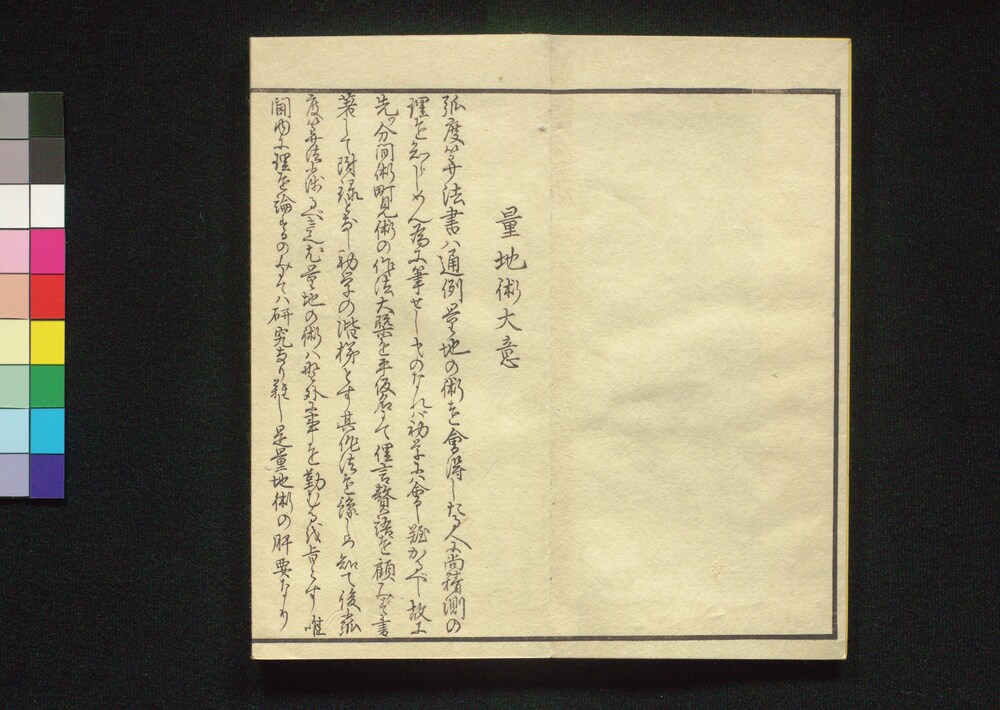 量地術大意
弧度算法書ハ通例量地の術を會得したる人に尚精測の
理を知らしめん為に筆せしものなれバ初学にハ會し難かるべし故に
先分間術町見術の作法大槩を平仮名にて俚言贅語を顧みず書
著して附録となし初学の階梯とす其作法を諳しめ知て後弧
度算法に渉るべきなり量地の術ハ野外に事を勤むるを旨とす唯
閫内に理を論するのみにてハ研究なり難し是量地術の肝要なり